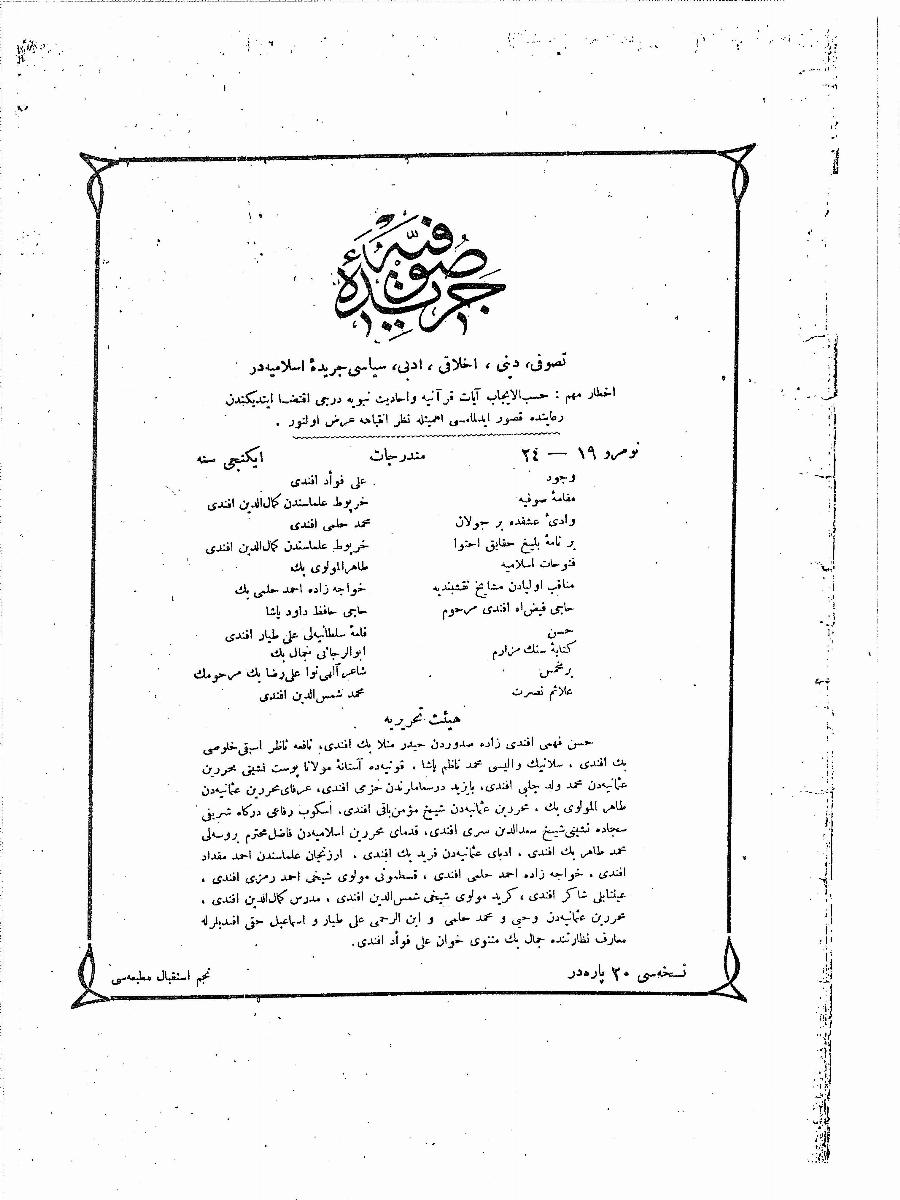 جريدۀ صوفيه
تصوفی، دينی، اخلاقی، ادبی، سياسی جريدۀ اسلاميه‌در
اخطار مهم : حسب‌الايجاب آيات قرآنيه واحاديث نبويه درجی اقتضا ايتديكندن
رعايتده قصور ايدلمامسی اهميتله نظر انتباهه عرض اولنور .
نومرو ١٩ — ٢٤ مندرجات ايكنجی سنه
وجود علی فوأد افندی
مقامۀ صوفيه خرپوط علماسندن كمال‌الدين افندی
وادیٔ عشقده بر جولان محمد حلمی افندی
بر نامۀ بليغ حقايق احتوا خرپوط علماسندن كمال‌الدين افندی
فتوحات اسلاميه طاهر المولوی بك
مناقب اوليادن مشايخ نقشبنديه خواجه زاده احمد حلمی بك
حاجی فيض‌اللّه افندی مرحوم حاجی حافظ داود پاشا
حسن قلعۀ سلطانيه‌لی علی طيار افندی
كتابۀ سنك مزارم ابوالرجائی جمال بك
بر مخمس شاعر آلهی نوا علی رضا بك مرحومك
علائم نصرت محمد شمس‌الدين افندی
هيئت تحريريه
حسن فهمی افندی زاده صدوردن حيدر منلا بك افندی، نافعه ناظر اسبقی خلوصی
بك افندی ، سلانيك واليسی محمد ناظم پاشا . قونيه‌ده آستانۀ مولانا پوست نشينی محررين
عثمانيه‌دن محمد ولد چلبی افندی، بايزيد درسعاملرندن حزمی افندی، عرفای محررين عثمانيه‌دن
طاهر المولوی بك ، محررين عثمانيه‌دن شيخ مؤمن باقی افندی، اسكوب رفاعی دركاه شريفی
سجاده نشينی شيخ سعدالدين سری افندی، قدمای محررين اسلاميه‌دن فاضل محترم بروسه‌لی
محمد طاهر بك افندی ، ادبای عثمانيه‌دن فريد بك افندی ، ارزنجان علماسندن احمد مقداد
افندی ، خواجه زاده احمد حلمی افندی ، قسطمونی مولوی شيخی احمد رمزی افندی ،
عينتابلی شاكر افندی ، كريد مولوی شيخی شمس‌الدين افندی ، مدرس كمال‌الدين افندی ،
محررين عثمانيه‌دن وحيی و محمد حلمی و ابن الرحمی علی طيار و اسماعيل حقی افنديلرله
معارف نظارتنده جمال بك مثنوی خوان علی فوأد افندی.
نسخه‌سی ٢٠ پاره‌در نجم استقبال مطبعه‌سی